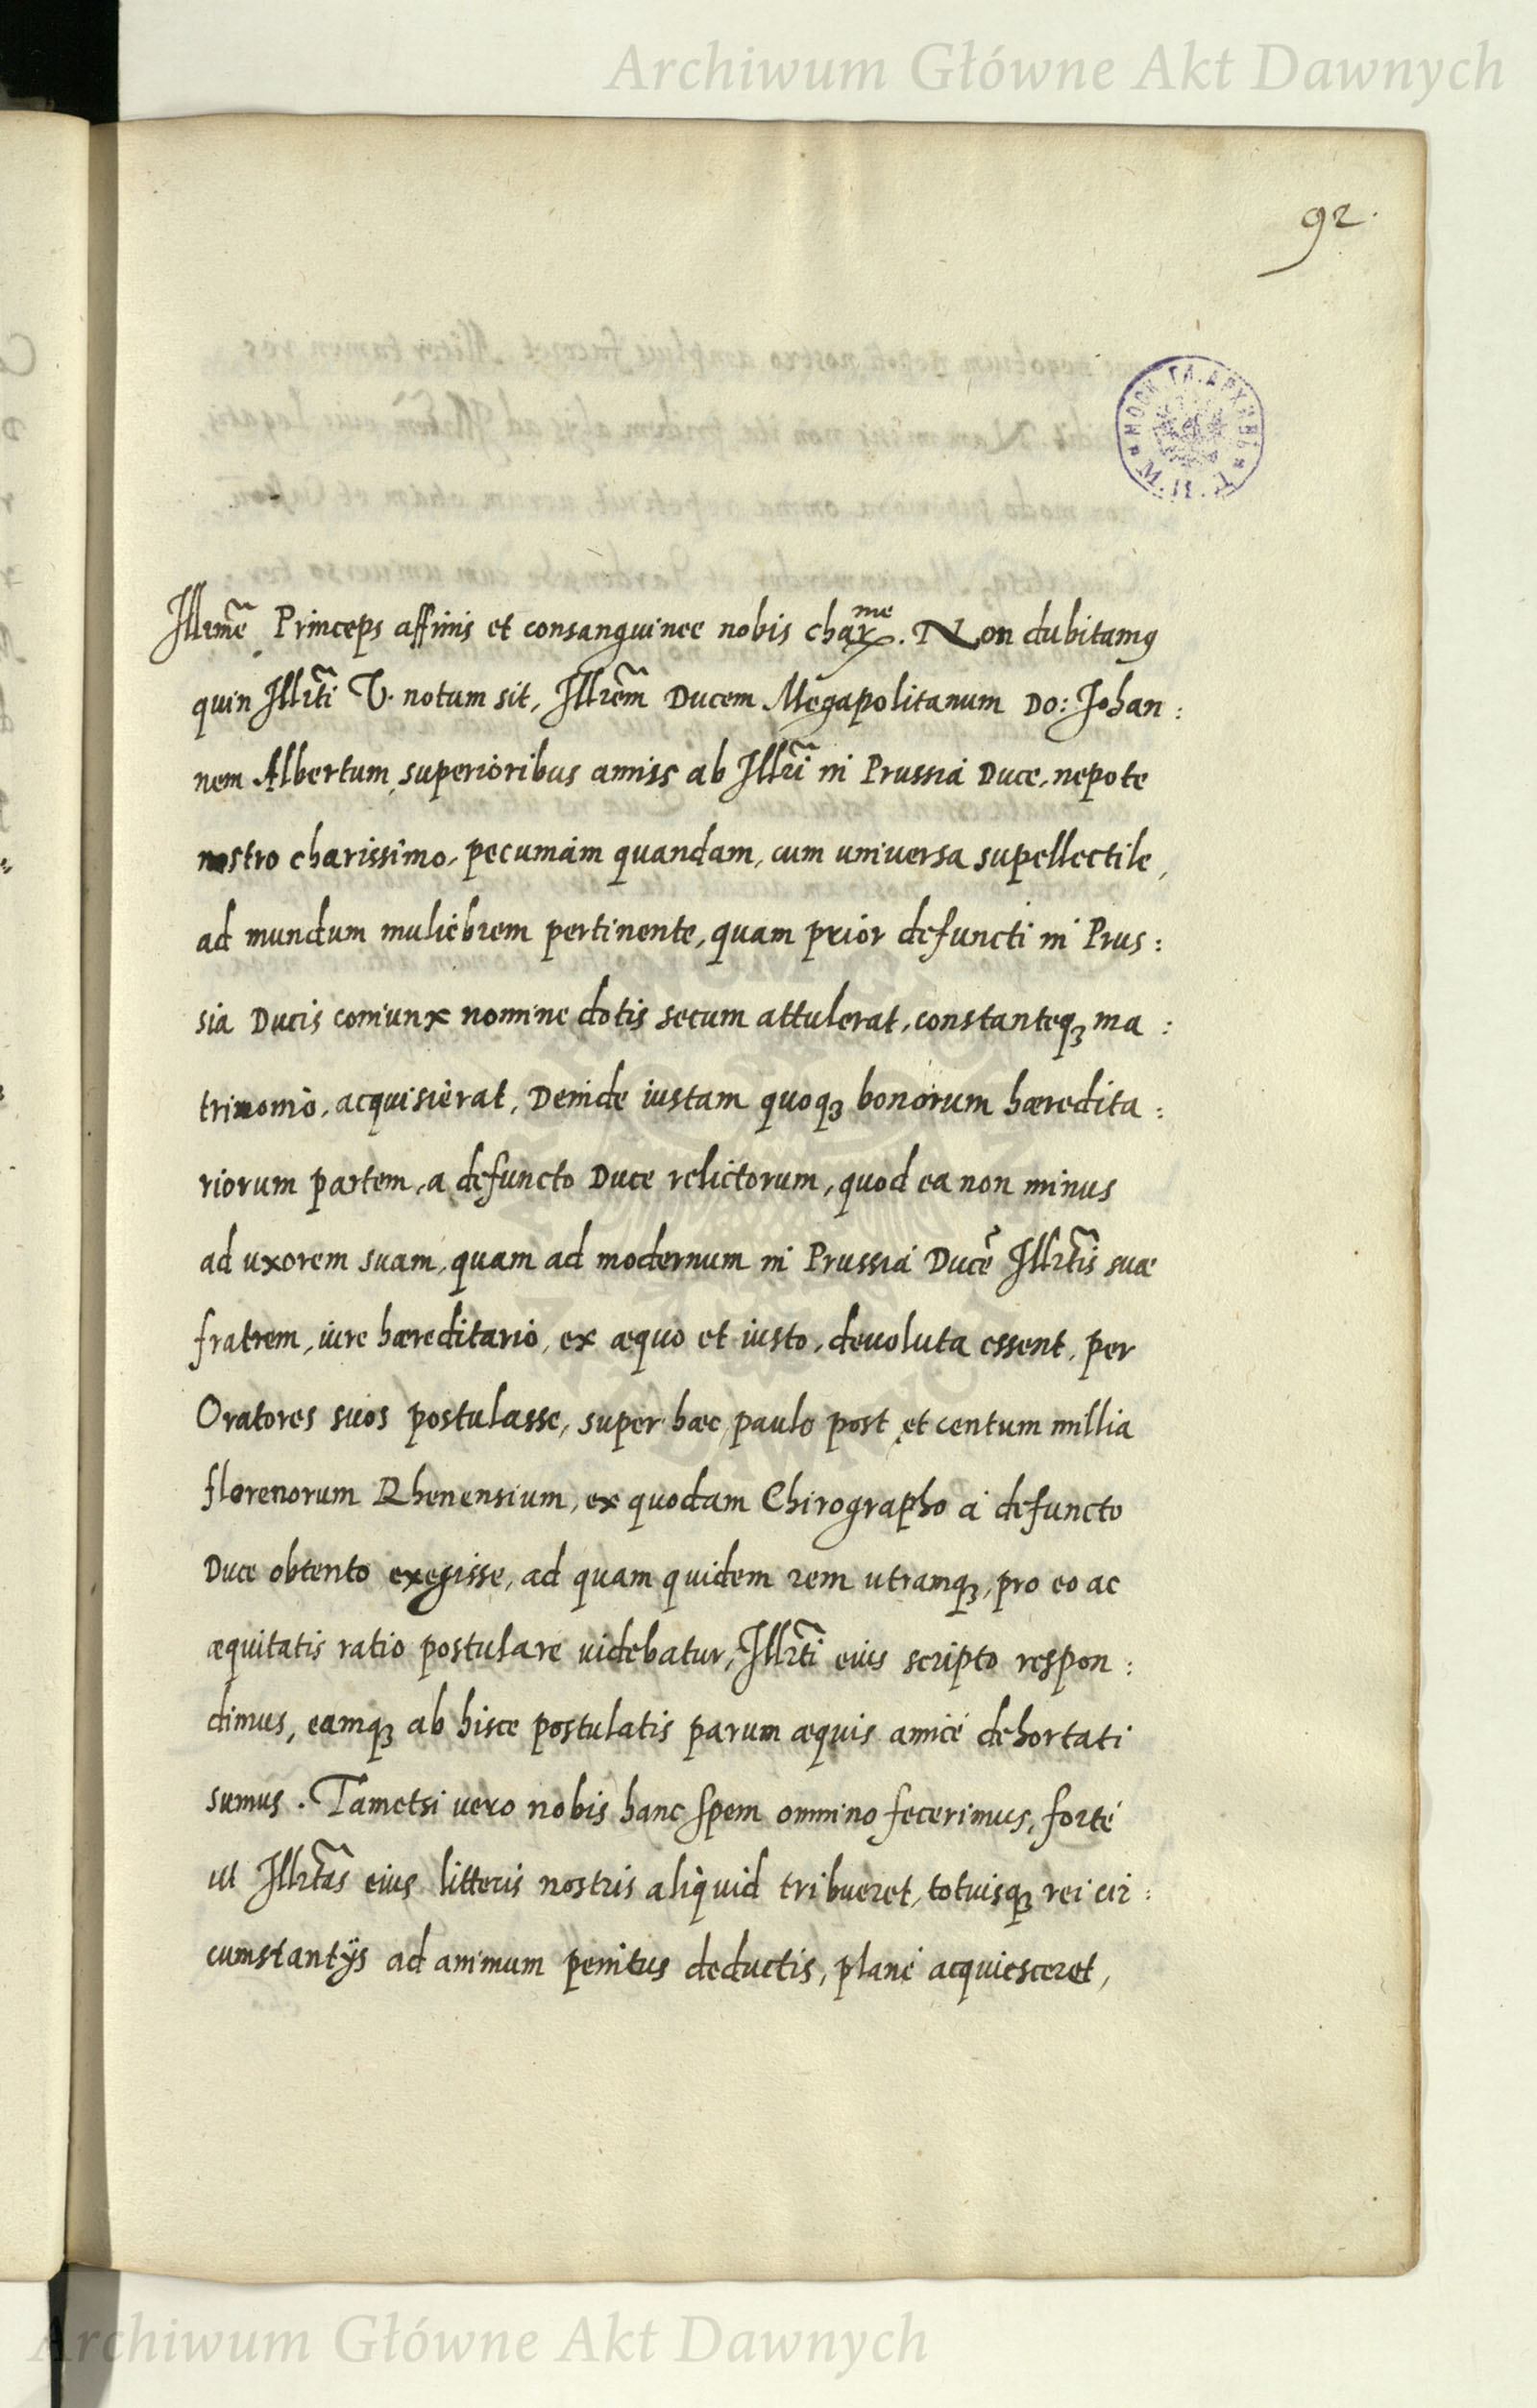 Archiwum Główne Akt Dawnych
92.
МОСК. ГЛ. АРХИВЪ
Illrmẽ Princeps affinis et consanguinee nobis charme. Non dubitamꝰ
quin Illrtĩ V. notum sit, Illrem̃ Ducem Megapolitanum Do: Johan:
nem Albertum, superioribus annis ab Illrĩ in Prussia Duce, nepote
nostro charissimo, pecuniam quandam, cum universa supellectile,
ad mundum muliebrem pertinente, quam prior defuncti in Prus:
sia Ducis coniunx nomine dotis secum attulerat, constanteqꝫ ma:
trimonio, acquisierat, Deinde iustam quoqꝫ bonorum hæredita:
riorum partem, a defuncto Duce relictorum, quod ea non minus
ad uxorem suam, quam ad modernum in Prussia Ducẽ Illrtĩs suæ
fratrem, iure hæreditario, ex æquo et iusto, devoluta essent, per
Oratores suos postulasse, super hæc paulo post et centum millia
florenorum Rhenensium, ex quodam Chirographo á defuncto
Duce obtento exegisse, ad quam quidem rem utramqꝫ, pro eo ac
æquitatis ratio postulare uidebatur, Illrtĩ eius scripto respon:
dimus, eamqꝫ ab hisce postulatis parum æquis amicé dehortati
sumus. Tametsi uero nobis hanc spem omnino fecerimus, forté
ut Illrtãs eius litteris nostris aliquid tribueret, totiusqꝫ rei cir:
cumstantijs ad animum penitus deductis, plané acquiesceret,
Archiwum Główne Akt Dawnych